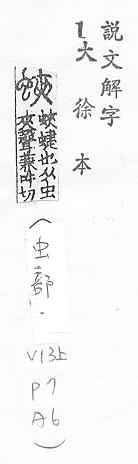 說文解字
大徐本
蛺 蛺蜨也从虫
夾聲兼叶切
(虫部.
V13上
P7
A6)